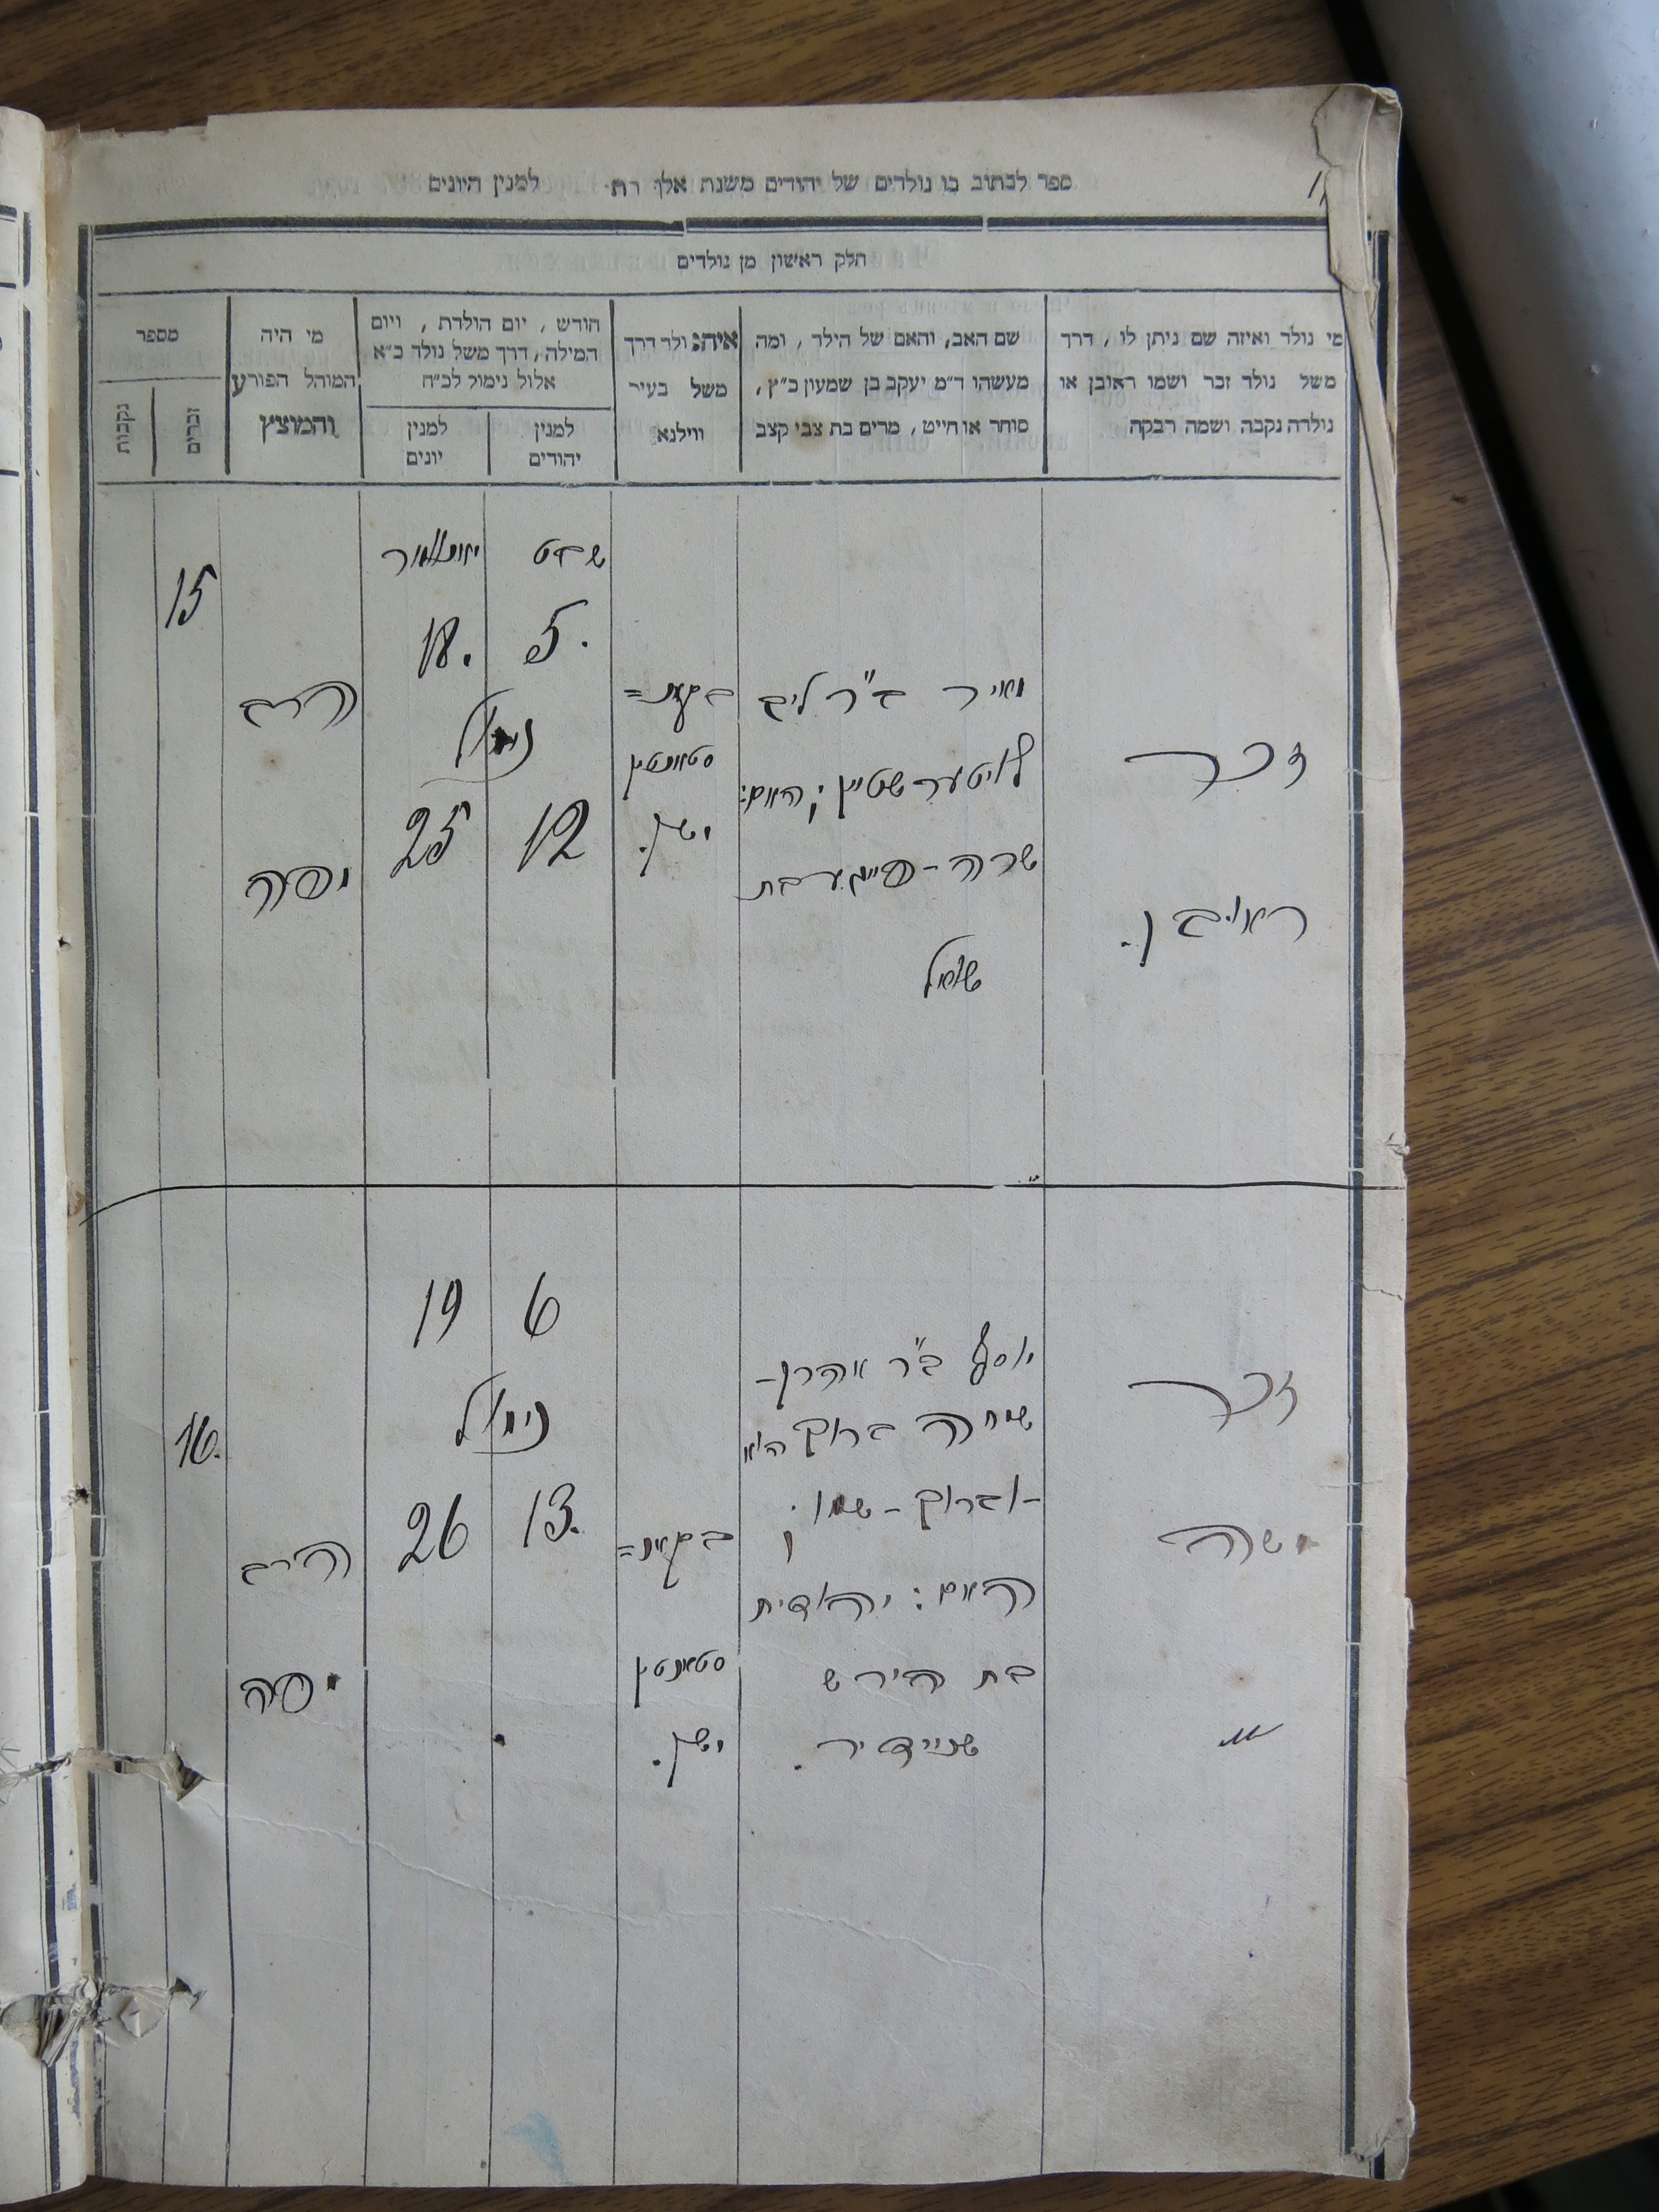 ספר לכתוב בו נולדים של יהודים משנת אלף רת למנין היונים
חלק ראשון מן נולדים
מי נולד ואיזה שם ניתן לו, דרך
משל נולד זכר ושמו ראובן או
נולדה נקבה ושמה רבקה
שם האב, והאם של הילד, ומה
מעשהו ד״מ יעקב בן שמעון כ״ץ,
סוחר או חייט, מרים בת צבי קצב
איה נולד דרך
משל בעיר
ווילנא
חודש, יום הולדת, ויום
המילה, דרך משל נולד כ״א
אלול נימול לכ״ח
למנין
יהודים
למנין
יונים
מי היה
המוהל הפורע
והמוצץ
מספר
זכרים
נקבות
זכר
ראובן.
מאיר ב״ר ליב
לויטערשטיין; האם:
שרה - פייגע בת
שמואל
=
סטאנטין
ישן.
שבט
5.
יאנואר
18.
נימול
12
25
הרב
יפה
15
זכר
משה
יוסף ב״ר אהרן -
שמחה ברוך הוא
- וברוך - שמו
האם: יהודית
בת הירש
שניידיר.
=
סטאנטין
ישן.
6
19
נימול
13.
26
הרב
יפה
16.